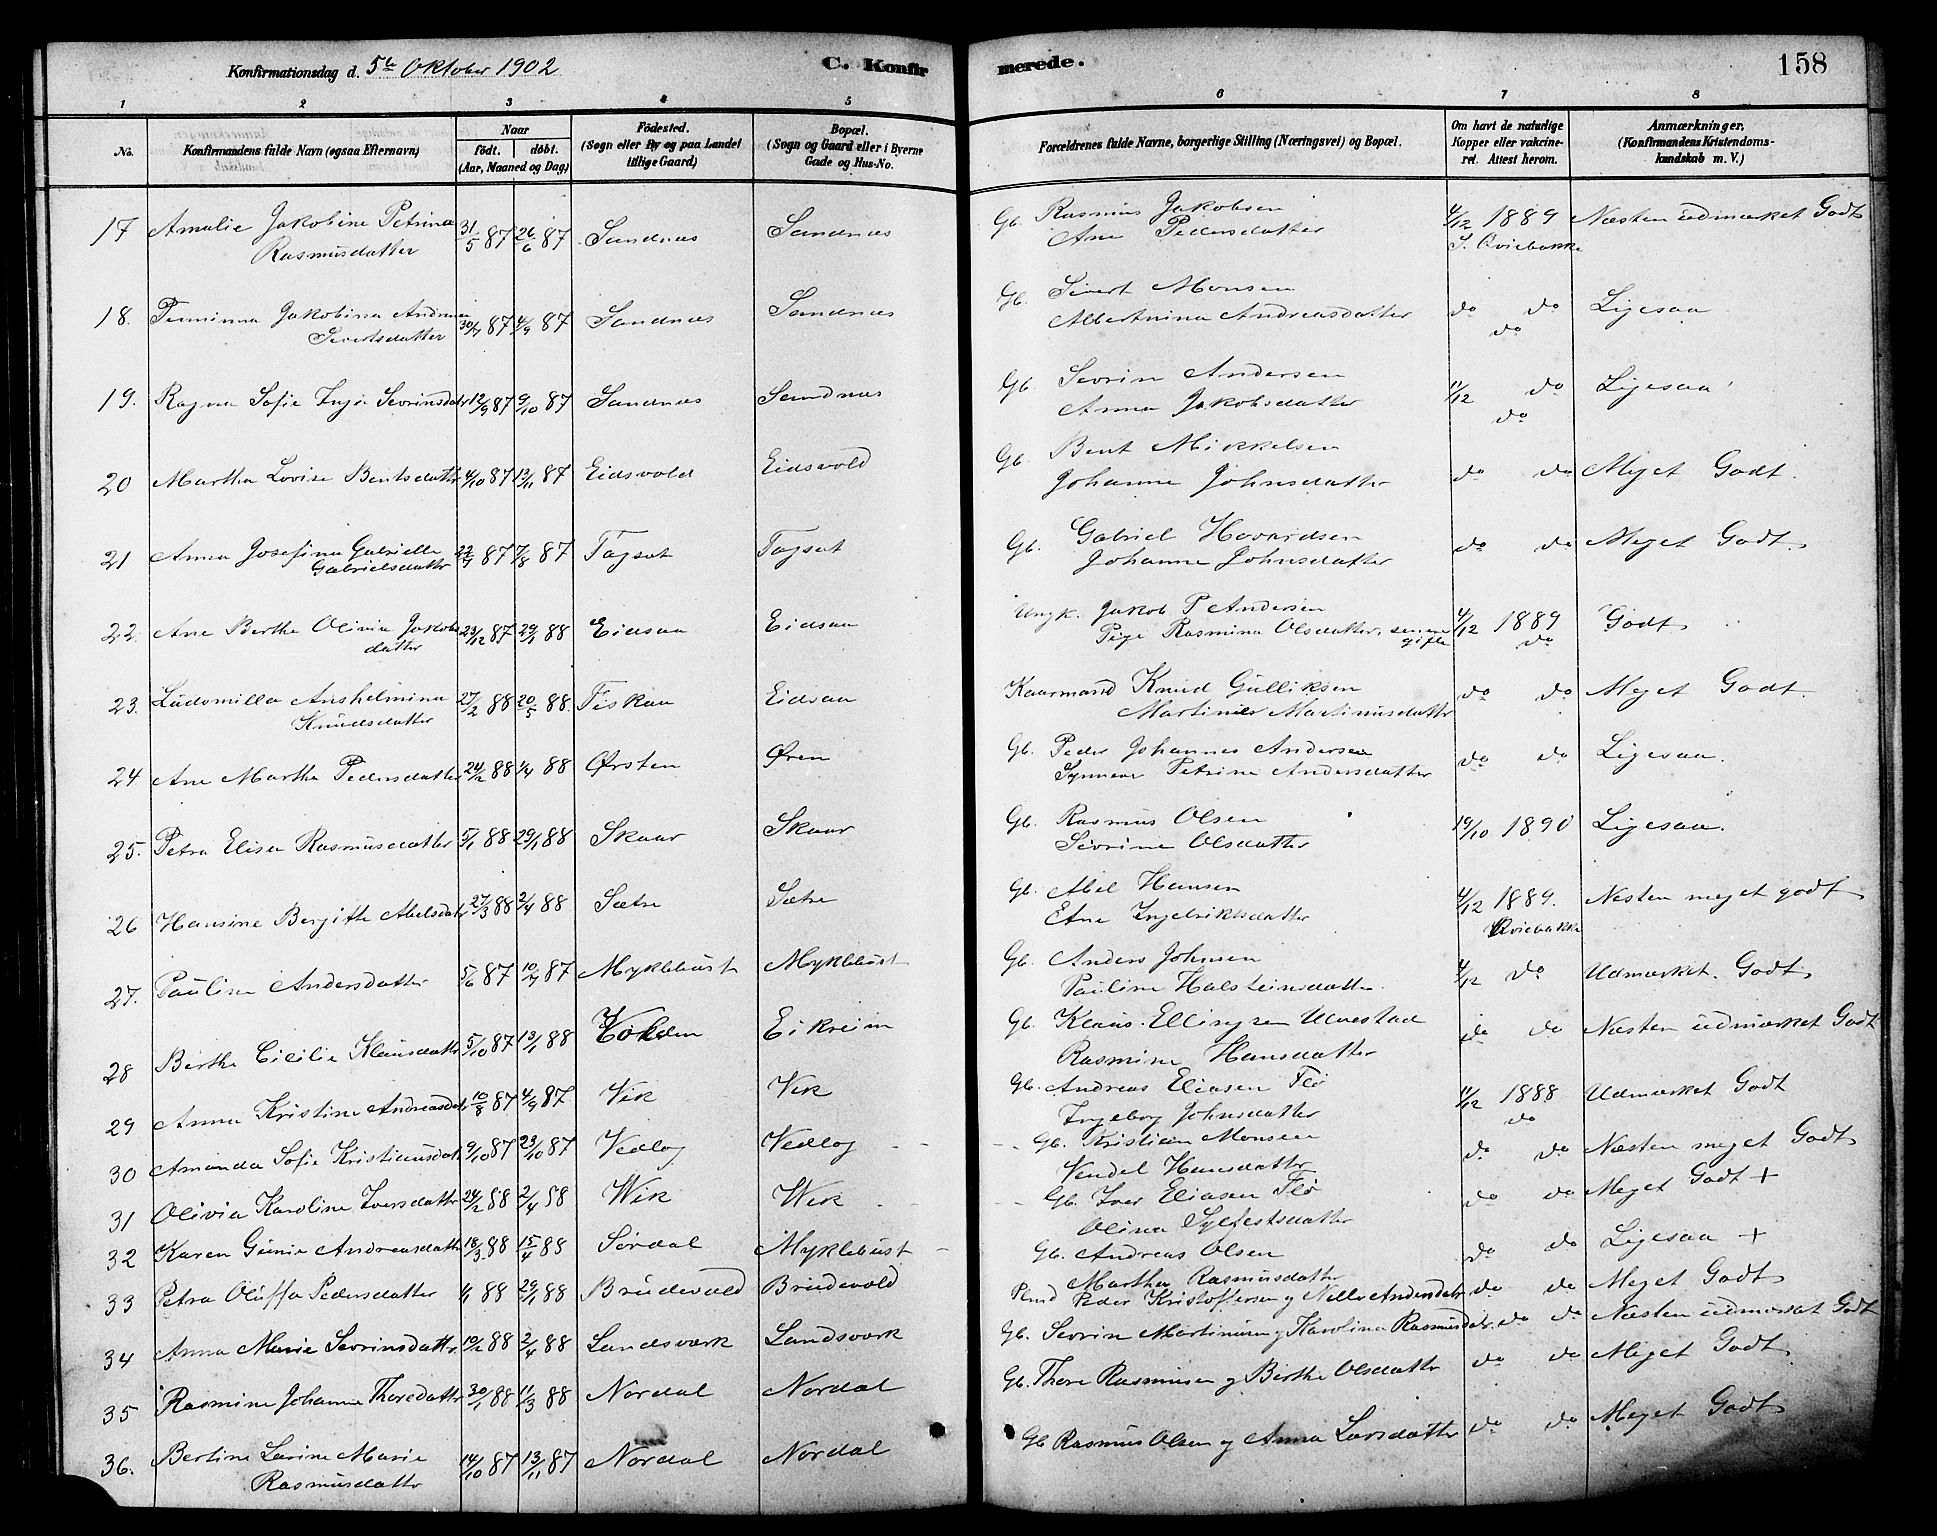 Konfirmationsdag d. 5te Oktober 1902 C. Konfirmerede. 158
1 2 3 4 5 6 7 8
No. Konfirmandens fulde Navn (ogsaa Efternavn) Naar født. døbt. (Aar, Maaned og Dag) Fødested. (Sogn eller By og paa Landet tillige Gaard) Bopæl. (Sogn og Gaard eller i Byerne Gade og Hus-No. Forældrenes fulde Navne, borgerlige Stilling (Næringsvei) og Bopæl. Om havt de naturlige Kopper eller vakcineret. Attest herom. Anmærkninger. (Konfirmandens Kristendomskundskab m. V.)
17 Amalie Jakobine Petrina Rasmusdatter 31/5 87 26/6 87 Sandnæs Sandnæs Gb. Rasmus Jakobsen Ane Pedersdatter 4/12 1889 S. Qviebakke Næsten udmærket Godt
18. Jakobina Sivertsdatter 30/7 87 4/9 87 Sandnæs Sandnæs Gb. Sivert Monsen Albertnina Andreasdatter do do do Ligesaa
19. Ragna Sofie Inga Sevrinsdatr 12/9 87 9/10 87 Sandnæs Sandnæs Gb. Sevrin Andersen Anna Jakobsdatter 11/12 do do Ligesaa
20 Martha Lovise Bentsdattr 4/10 87 13/11 87 Eidsvold Eidsvold Gb. Bent Mikkelsen Johanne Johnsdatter do do Meget Godt.
21 Anna Josefina Gabrielle Gabrielsdattr 22/7 87 7/8 87 Tagsat Tagsat Gb. Gabriel Hovardsen Johanne Johnsdatter do do Meget Godt.
22. Ane Berthe Olivia Jakobsdatter 23/12 87 29/1 88 Eidsaa Eidsaa Ungk. Jakob P Andersen Pige Rasmina Olsdatter, senere gifte 4/12 1889 do Godt
23. Ludomilla Anshelmina Knudsdatter 27/2 88 20/5 88. Fiskaa Eidsaa Kaarmand Knud Gulliksen Martine Martinusdattr do do Meget Godt.
24 Ane Martha Pedersdatter 24/2 88 1/4 88 Ørsten Øren Gb. Peder Johannes Andersen Synneve Petrine Andersdatter do do Ligesaa.
25. Petra Elisa Rasmusdatter 5/1 88 29/1 88 Skaar Skaar Gb. Rasmus Olsen Sevrine Olsdatter 19/10 1890 Ligesaa.
26 Hansine Bergitte Abelsdatr 27/3 88 2/4 88 Sætre Sætre Gb. Abel Hansen Ane Ingebriktsdatter 4/12 1889. Qviebakke Næsten meget godt
27. Pauline Andersdatter 5/6 87 10/7 87 Myklebust Myklebust Gb. Anders Johnsen Pauline Halsteinsdatter. 4/12 do Udmærket. Godt
28 Berthe Cicilie Klausdattr 5/10 87 13/1 88 Volden Eikreim Gb. Klaus Ellingsen Ulvestad Rasmine Hansdatter do do Næsten udmærket Godt
29 Anna Kristine Andreasdatr 10/8 87 4/9 87 Vik Vik Gb. Andreas Eliasen Flø Ingeborg Johnsdatter 11/12 1888 do Udmærket Godt
30 Amanda Sofie Kristiansdatr 9/10 87 23/10 87 Vedlog Vedlog Gb. Kristian Monsen Vendel Hansdattr do do Næsten meget Godt
31 Olivia Karoline Iversdattr 24/2 88 2/4 88 Wik Wik Gb. Iver Eliasen Flø Olina Sylfestsdatter do do Meget Godt +
32 Karen Gunie Andreasdattr 18/3 88 15/4 88 Sørdal Myklebust Gb. Andreas Olsen Martha Rasmusdatter do do Ligesaa +
33 Petra Oluffa Pedersdatter 88 29/1 88 Brudevold Brudevold Plmd Peder Kristoffersen og Nille Andersdatr do do Meget Godt
34 Anna Marie Sevrinsdattr 10/2 88 2/4 88 Landsværk Landsværk Gb. Sevrin Martinusen og Karolina Rasmusdatr. do do Næsten udmærket Godt
35 Rasmine Johanne Thoredattr 30/1 88 11/3 88 Nordal Nordal Gb. Thore Rasmusen og Berthe Olsdatter do do Meget Godt
36. Bertine Lavine Marie Rasmusdattr 14/10 87 13/11 87 Nordal Nordal Gb Rasmus Olsen og Anna Larsdatter do do Meget Godt